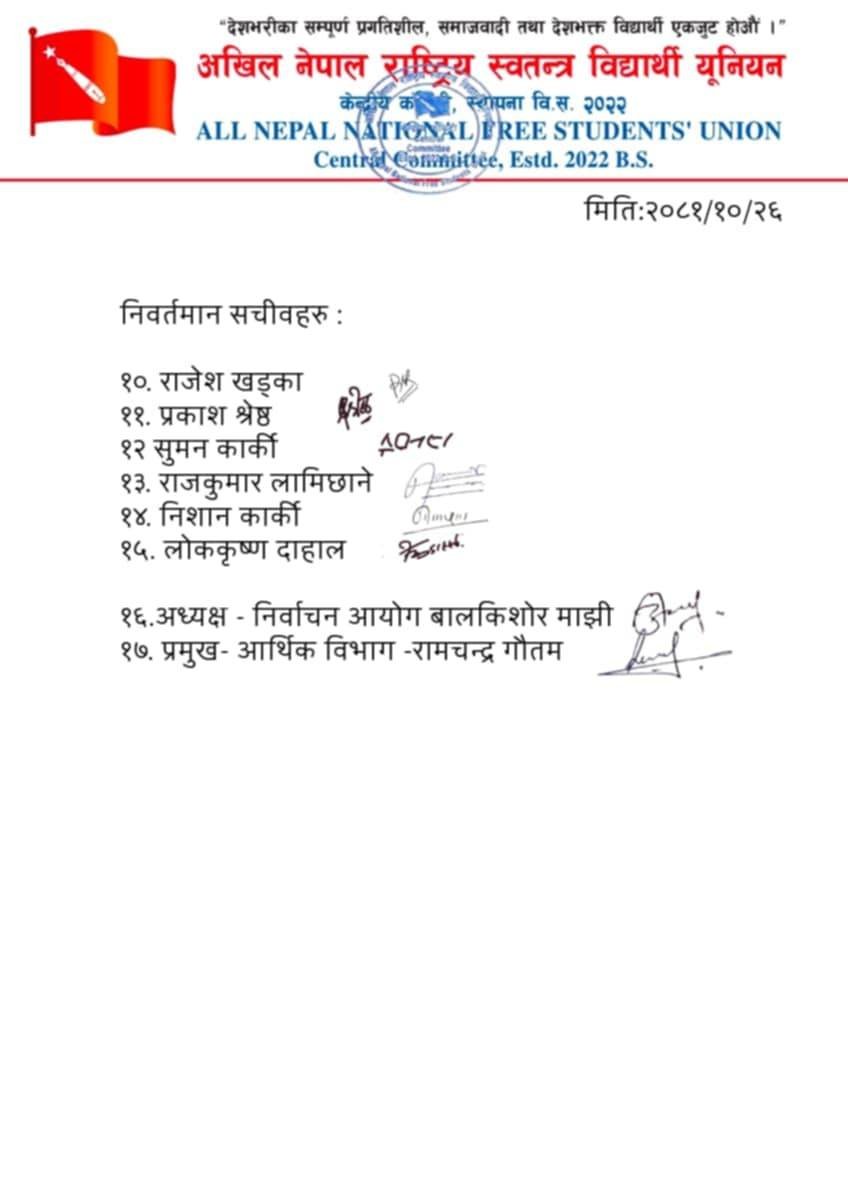 “देशभरीका सम्पूर्ण प्रगतिशील, समाजवादी तथा देशभक्त विद्यार्थी एकजुट होऔं ।”
अखिल नेपाल राष्ट्रिय स्वतन्त्र विद्यार्थी यूनियन
केन्द्रीय कमिटी, स्थापना वि.स. २०२२
ALL NEPAL NATIONAL FREE STUDENTS' UNION
Central Committee, Estd. 2022 B.S.
मिति:२०८१/१०/२६
निवर्तमान सचीवहरु :
१०. राजेश खड्का
११. प्रकाश श्रेष्ठ
१२ सुमन कार्की
१३. राजकुमार लामिछाने
१४. निशान कार्की
१५. लोककृष्ण दाहाल
१६.अध्यक्ष - निर्वाचन आयोग बालकिशोर माझी
१७. प्रमुख- आर्थिक विभाग -रामचन्द्र गौतम